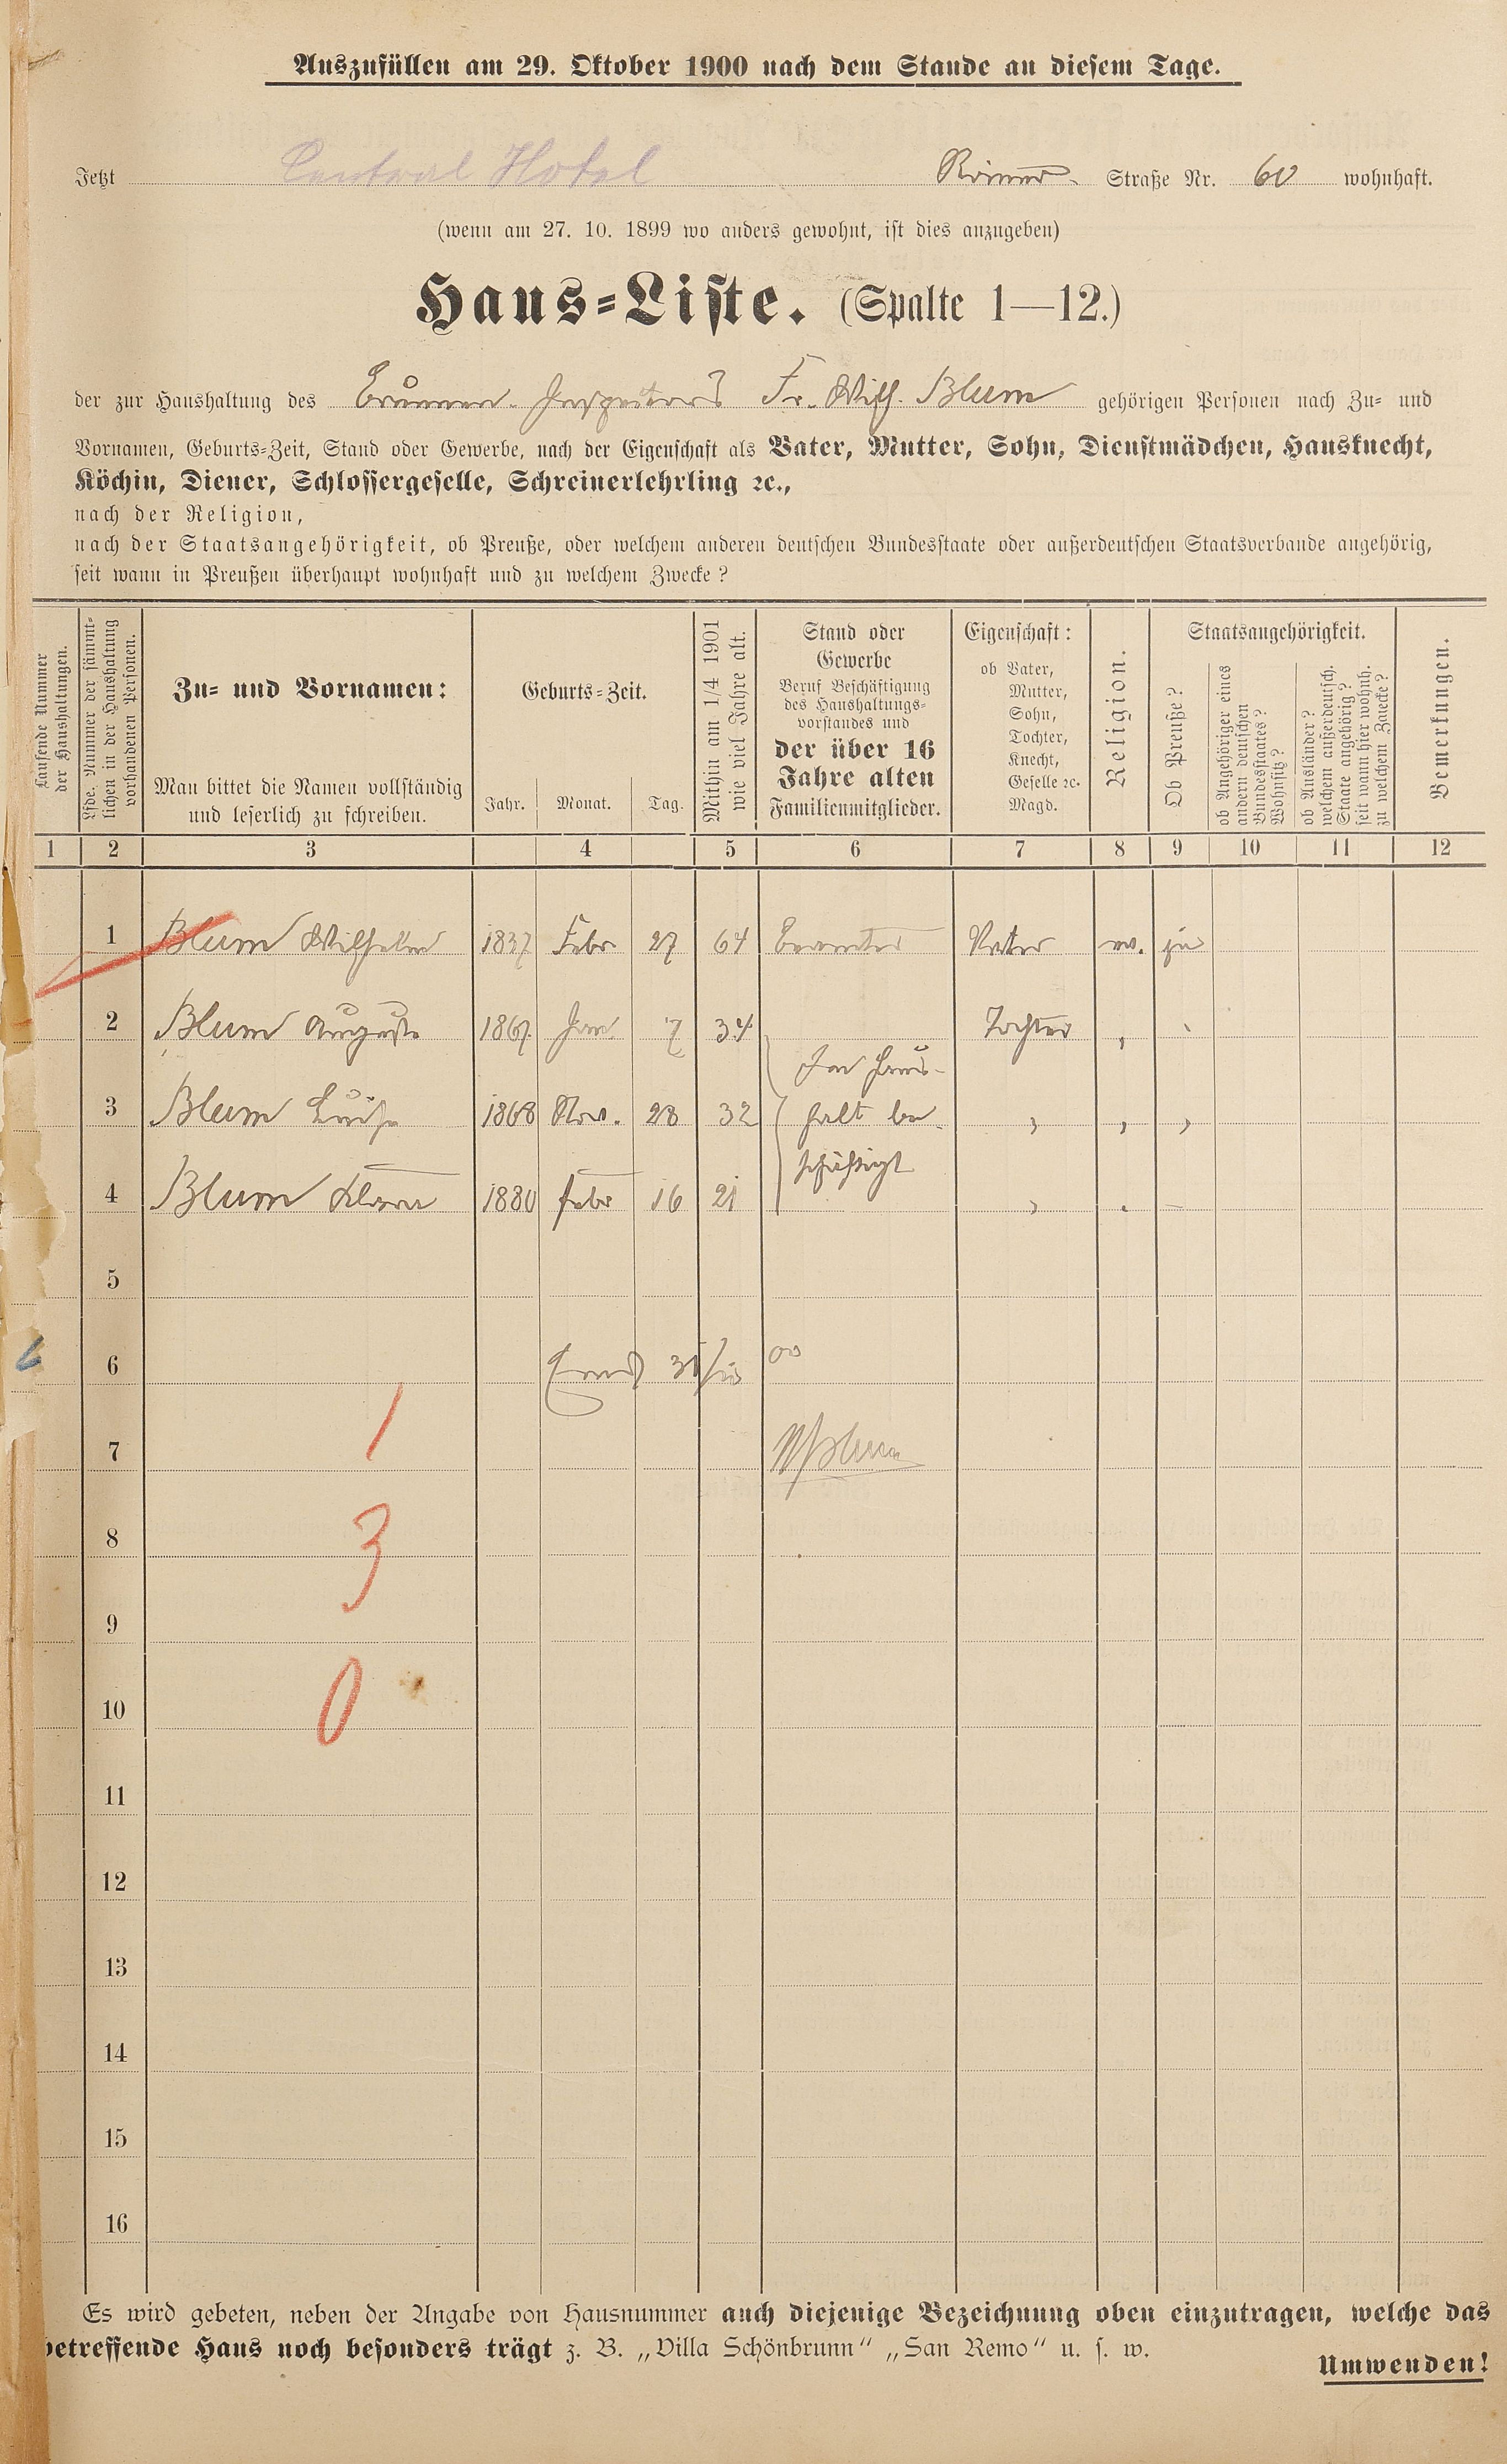 Auszufüllen am 29. Oktober 1900 nach dem Stande an diesem Tage.
Jetzt Central Hotel Römer- Straße Nr. 60 wohnhaft.
(wenn am 27. 10. 1899 wo anders gewohnt, ist dies anzugeben)
Haus-Liste. (Spalte 1—12.)
der zur Haushaltung des Brunnen-Inspektors Fr. Wilh. Blum gehörigen Personen nach Zu- und
Vornamen, Geburts-Zeit, Stand oder Gewerbe, nach der Eigenschaft als Vater, Mutter, Sohn, Dienstmädchen, Hausknecht,
Köchin, Diener, Schlossergeselle, Schreinerlehrling ꝛc.,
nach der Religion,
nach der Staatsangehörigkeit, ob Preuße, oder welchem anderen deutschen Bundesstaate oder außerdeutschen Staatsverbande angehörig,
seit wann in Preußen überhaupt wohnhaft und zu welchem Zwecke?
Laufende Nummer
der Haushaltungen.
Lfde. Nummer der sämmt-
lichen in der Haushaltung
vorhandenen Personen.
Zu- und Vornamen:
Man bittet die Namen vollständig
und leserlich zu schreiben.
Geburts-Zeit.
Jahr. Monat. Tag.
Mithin am 1/4 1901
wie viel Jahre alt.
Stand oder
Gewerbe
Beruf Beschäftigung
des Haushaltungs-
vorstandes und
der über 16
Jahre alten
Familienmitglieder.
Eigenschaft:
ob Vater,
Mutter,
Sohn,
Tochter,
Knecht,
Geselle ꝛc.
Magd.
Religion.
Staatsangehörigkeit.
Ob Preuße?
ob Angehöriger eines
andern deutschen
Bundesstaates?
Wohnsitz?
ob Ausländer?
welchem außerdeutsch.
Staate angehörig?
seit wann hier wohnh.
zu welchem Zwecke?
Bemerkungen.
1 2 3 4 5 6 7 8 9 10 11 12
1 Blum Wilhelm 1837 Febr 27 64 Beamter Vater ev. ja
2 Blum Auguste 1867 Jan. 7 34 Tochter „ „
Im Haus-
3 Blum Luise 1868 Nov. 28 32 halt be- „ „ „
schäftigt
4 Blum Klara 1880 Febr 16 21 „ „ „
5
6 Ems 31/10 00
1
7 W Blum
8
3
9
10
0
11
12
13
14
15
16
Es wird gebeten, neben der Angabe von Hausnummer auch diejenige Bezeichnung oben einzutragen, welche das
betreffende Haus noch besonders trägt z. B. „Villa Schönbrunn“ „San Remo“ u. s. w.
Umwenden!